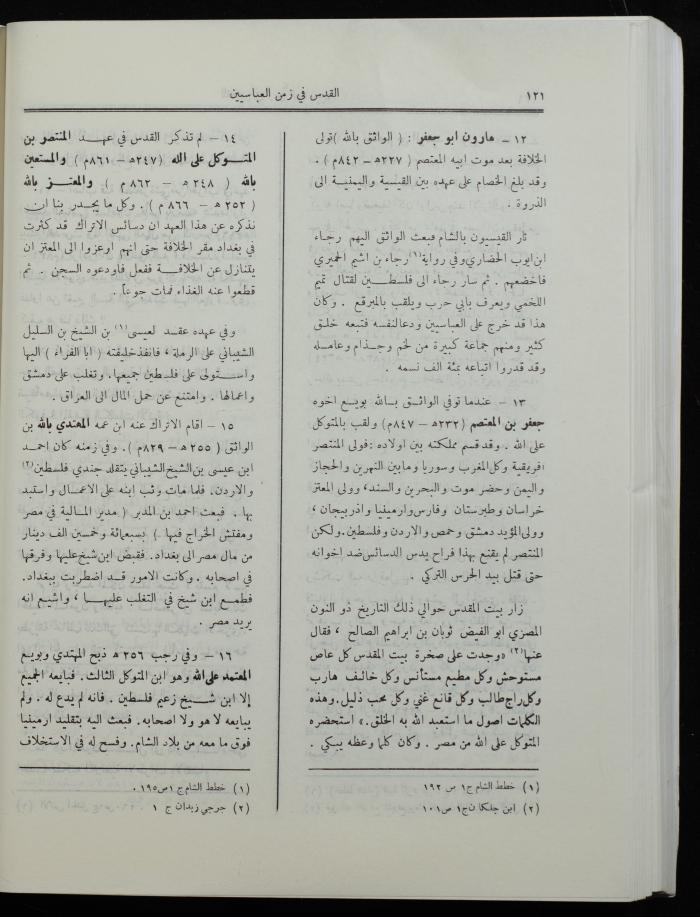 ١٢١
القدس في زمن العباسيين
١٢ – هارون ابو جعفر : ( الواثق بالله )تولى
الخلافة بعد موت ابيه المعتصم ( ٢٢٧ه – ٨٤٢م ) .
وقد بلغ الخصام على عهده بين القيسية واليمنية الى
الذروة .
ثار القيسيون بالشام فبعث الواثق اليهم رجاء
ابن ايوب الحضاري وفي رواية(١) رجاء بن اشيم الحميري
فاخضعهم . ثم سار رجاء الى فلسطين لقتال تميم
اللخمي ويعرف بابي حرب ويلقب بالمبرقع . وكان
هذا قد خرج على العباسيين ودعا لنفسه فتبعه خلق
كثير ومنهم جماعة كبيرة من لخم وجذام وعامله
وقد قدروا اتباعه بمئة الف نسمه .
١٣ – عندما توفي الواثق بالله بويع اخوه
جعفر بن المعتصم (٢٣٢ه – ٨٤٧م) ولقب بالمتوكل
على الله . وقد قسم مملكته بين اولاده : فولى المنتصر
افريقية وكل المغرب وسوريا وما بين النهرين والحجاز
واليمن وحضر موت والبحرين والسند، وولى المعتز
خراسان وطبرستان وفارس وارمينيا واذربيجان ،
وولى المؤيد دمشق وحمص والاردن وفلسطين. ولكن
المنتصر لم يقنع بهذا فراح يدس الدسائس ضد اخوانه
حتى قتل بيد الحرس التركي .
زار بيت المقدس حوالي ذلك التاريخ ذو النون
المصري ابو الفيض ثوبان بن ابراهيم الصالح ، فقال
عنها(٢) «وجدت على صخرة بيت المقدس كل عاص
مستوحش وكل مطيع مستأنس وكل خائف هارب
وكل راج طالب وكل قانع غني وكل محب ذليل. وهذه
الكلمات اصول ما استعبد الله به الخلق.» استحضره
المتوكل على الله من مصر . وكان كلما وعظه يبكي .
(١) خطط الشام ج١ ص ١٩٢
(٢) ابن خلكان ج١ ص ١٠١
١٤ – لم تذكر القدس في عهد المنتصر بن
المتوكل على الله (٢٤٧ه – ٨٦١م ) والمستعين
بالله ( ٢٤٨ ه – ٨٦٢ م ) والمعتز بالله
( ٢٥٢ ه – ٨٦٦ م ) . وكل ما يجدر بنا ان
نذكره عن هذا العهد ان دسائس الاتراك قد كثرت
في بغداد مقر الخلافة حتى انهم اوعزوا الى المعتز ان
يتنازل عن الخلافة ففعل فاودعوه السجن . ثم
قطعوا عنه الغذاء فمات جوعاً .
وفي عهده عقد لعيسى(١) بن الشيخ بن السليل
الشيباني على الرملة ، فانفذ خليفته ( ابا المغراء ) اليها
واستولى على فلسطين جميعها. وتغلب على دمشق
واعمالها . وامتنع عن حمل المال الى العراق .
١٥ – اقام الاتراك عنه ابن عمه المهتدي بالله بن
الواثق ( ٢٥٥ ه – ٨٢٩م ) . وفي زمنه كان احمد
ابن عيسى بن الشيخ الشيباني يتقلد جندي فلسطين(٢)
والاردن. فلما مات وثب ابنه على الاعمال واستبد
بها . فبعث احمد بن المدبر ( مدير المالية في مصر
ومفتش الخراج فيها ) بسبعمائة وخمسين الف دينار
من مال مصر الى بغداد. فقبض ابن شيخ عليها وفرقها
في اصحابه . وكانت الامور قد اضطربت ببغداد.
فطمع ابن شيخ في التغلب عليها ، واشيع انه
يريد مصر .
١٦ – وفي رجب ٢٥٦ ه ذبح المهتدي وبويع
المعتمد على الله وهو ابن المتوكل الثالث. فبايعه الجميع
إلا ابن شيخ زعيم فلسطين . فانه لم يدع له . ولم
يبايعه لا هو ولا اصحابه. فبعث اليه بتقليد ارمينيا
فوق ما معه من بلاد الشام. وفسح له في الاستخلاف
(١) خطط الشام ج١ ص١٩٥ .
(٢) جرجي زيدان ج ١